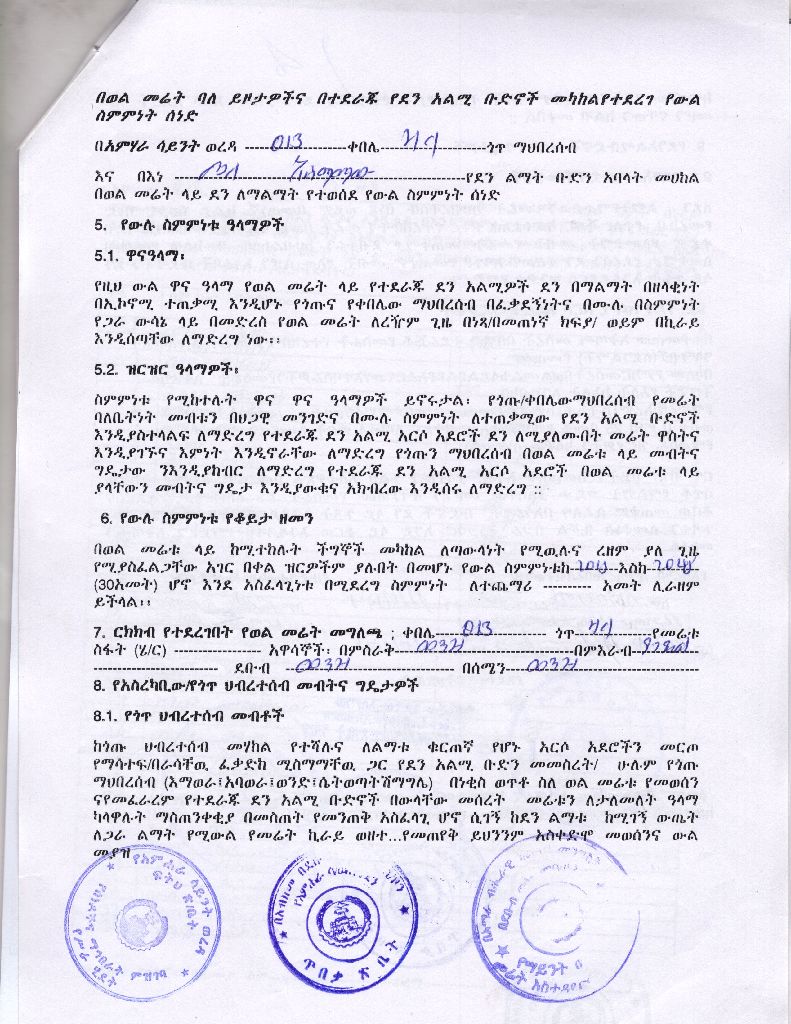 በወል መሬት ባለ ይዞታዎችና በተደራጁ የደን አልሚ ቡድኖች መካከልየተደረገ የውል
ስምምነት ሰነድ
በአምሃራ ሳይንት ወረዳ ---------013----------ቀበሌ---------------------ጎጥ ማህበረሰብ
እና በእነ ------------------------------------------የደን ልማት ቡድን አባላት መሀከል
በወል መሬት ላይ ደን ለማልማት የተወሰደ የውል ስምምነት ሰነድ
5. የውሉ ስምምነቱ ዓላማዎች
5.1. ዋናዓላማ፡
የዚህ ውል ዋና ዓላማ የወል መሬት ላይ የተደራጁ ደን አልሚዎች ደን በማልማት በዘላቂነት
በኢኮኖሚ ተጠቃሚ እንዲሆኑ የጎጡና የቀበሌው ማህበረሰብ በፈቃደኝነትና በሙሉ በስምምነት
የጋራ ውሳኔ ላይ በመድረስ የወል መሬት ለረዥም ጊዜ በነጻ/በመጠነኛ ክፍያ/ ወይም በኪራይ
እንዲሰጣቸው ለማድረግ ነው፡፡
5.2. ዝርዝር ዓላማዎች፡
ስምምነቱ የሚከተሉት ዋና ዋና ዓላማዎች ይኖሩታል፡ የጎጡ/ቀበሌውማህበረሰብ የመሬት
ባለቤትነት መብቱን በህጋዊ መንገድና በሙሉ ስምምነት ለተጠቃሚው የደን አልሚ ቡድኖች
እንዲያስተላልፍ ለማድረግ የተደራጁ ደን አልሚ አርሶ አደሮች ደን ለሚያለሙበት መሬት ዋስትና
እንዲያገኙና እምነት እንዲኖራቸው ለማድረግ የጎጡን ማህበረሰብ በወል መሬቱ ላይ መብትና
ግዴታው ንእንዲያከብር ለማድረግ የተደራጁ ደን አልሚ አርሶ አደሮች በወል መሬቱ ላይ
ያላቸውን መብትና ግዴታ እንዲያውቁና አክብረው እንዲሰሩ ለማድረግ ::
6. የውሉ ስምምነቱ የቆይታ ዘመን
በወል መሬቱ ላይ ከሚተከሉት ችግኞች መካከል ለጣውላነት የሚዉሉና ረዘም ያለ ጊዜ
የሚያስፈልጋቸው አገር በቀል ዝርዎችም ያሉበት በመሆኑ የውል ስምምነቱከ--------እስከ--------
(30አመት) ሆኖ እንደ አስፈላጊነቱ በሚደረግ ስምምነት ለተጨማሪ ---------- አመት ሊራዘም
ይችላል፡፡
7. ርክክብ የተደረገበት የወል መሬት መግለጫ ; ቀበሌ------013-------------- ጎጥ----------------የመሬቱ
ስፋት (ሄ/ር) ----------------- አዋሳኞች፡ በምስራቅ----ወንዝ--------------------በምእራብ-----------
------------------------ ደቡብ ---ወንዝ---------------------- በሰሜን----ወንዝ---------------------------
8. የአስረካቢው/የጎጥ ህብረተሰብ መብትና ግዴታዎች
8.1. የጎጥ ህብረተሰብ መብቶች
ከጎጡ ህብረተሰብ መሃከል የተሻሉና ለልማቱ ቁርጠኛ የሆኑ አርሶ አደሮችን መርጦ
የማሳተፍ/በራሳቸዉ ፈቃድከ ሚስማማቸዉ ጋር የደን አልሚ ቡድን መመስረት/ ሁሉም የጎጡ
ማህበረሰብ (እማወራ፤አባወራ፤ወንድ፤ሴትወጣትሽማግሌ) በነቂስ ወጥቶ ስለ ወል መሬቱ የመወሰን
ናየመፈራረም የተደራጁ ደን አልሚ ቡድኖች በውላቸው መሰረት መሬቱን ለታለመለት ዓላማ
ካላዋሉት ማስጠንቀቂያ በመስጠት የመንጠቅ አስፈላጊ ሆኖ ሲገኝ ከደን ልማቱ ከሚገኝ ውጤት
ለጋራ ልማት የሚውል የመሬት ኪራይ ወዘተ...የመጠየቅ ይህንንም አስቀድሞ መወሰንና ውል
መያዝ
የአምሐራ ሳይንት ወረዳ
ፍትህ ጽ/ቤት
ምዝገባ
ጥበቃ ጽ ቤት